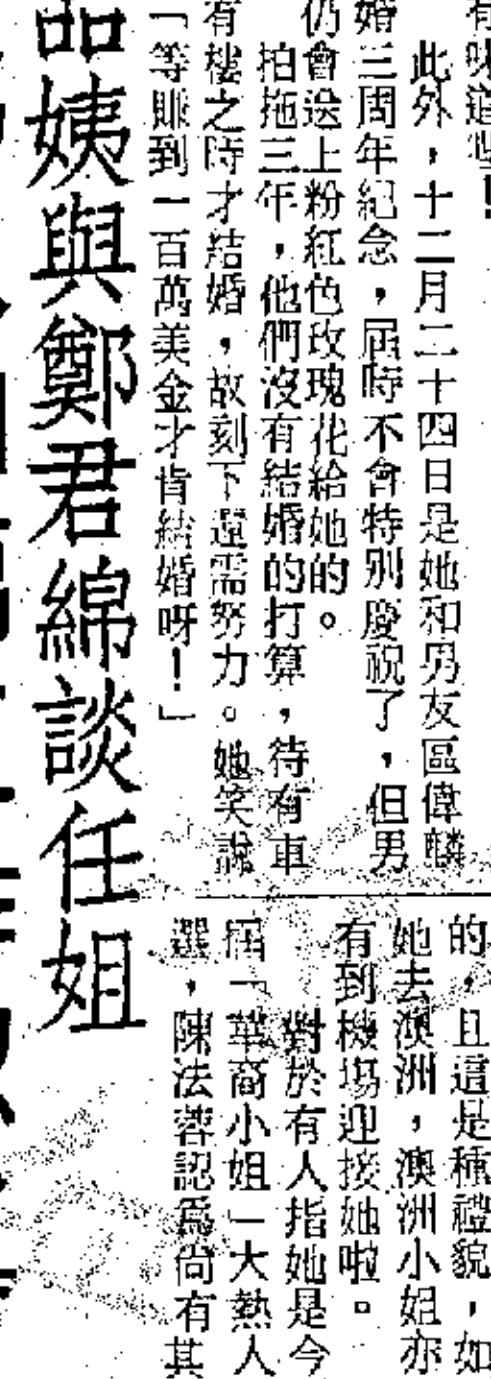 有味道
此外，十二月二十四日是她和男友區偉麟
婚三周年紀念，屆時不會特別慶祝了，但男
仍會送上粉紅色玫瑰花給她的。
拍拖三年，他們沒有結婚的打算，待有車
有樓之時才結婚，故刻下還需努力。她笑說
「等賺到一百萬美金才肯結婚呀！」
的，且這是種禮貌，如
她去澳洲，澳洲小姐亦
有到機場迎接她啦。
對於有人指她是今
屆「華商小姐」大熱人
選，陳法蓉認爲尚有其
品姨與鄭君綿談任姐